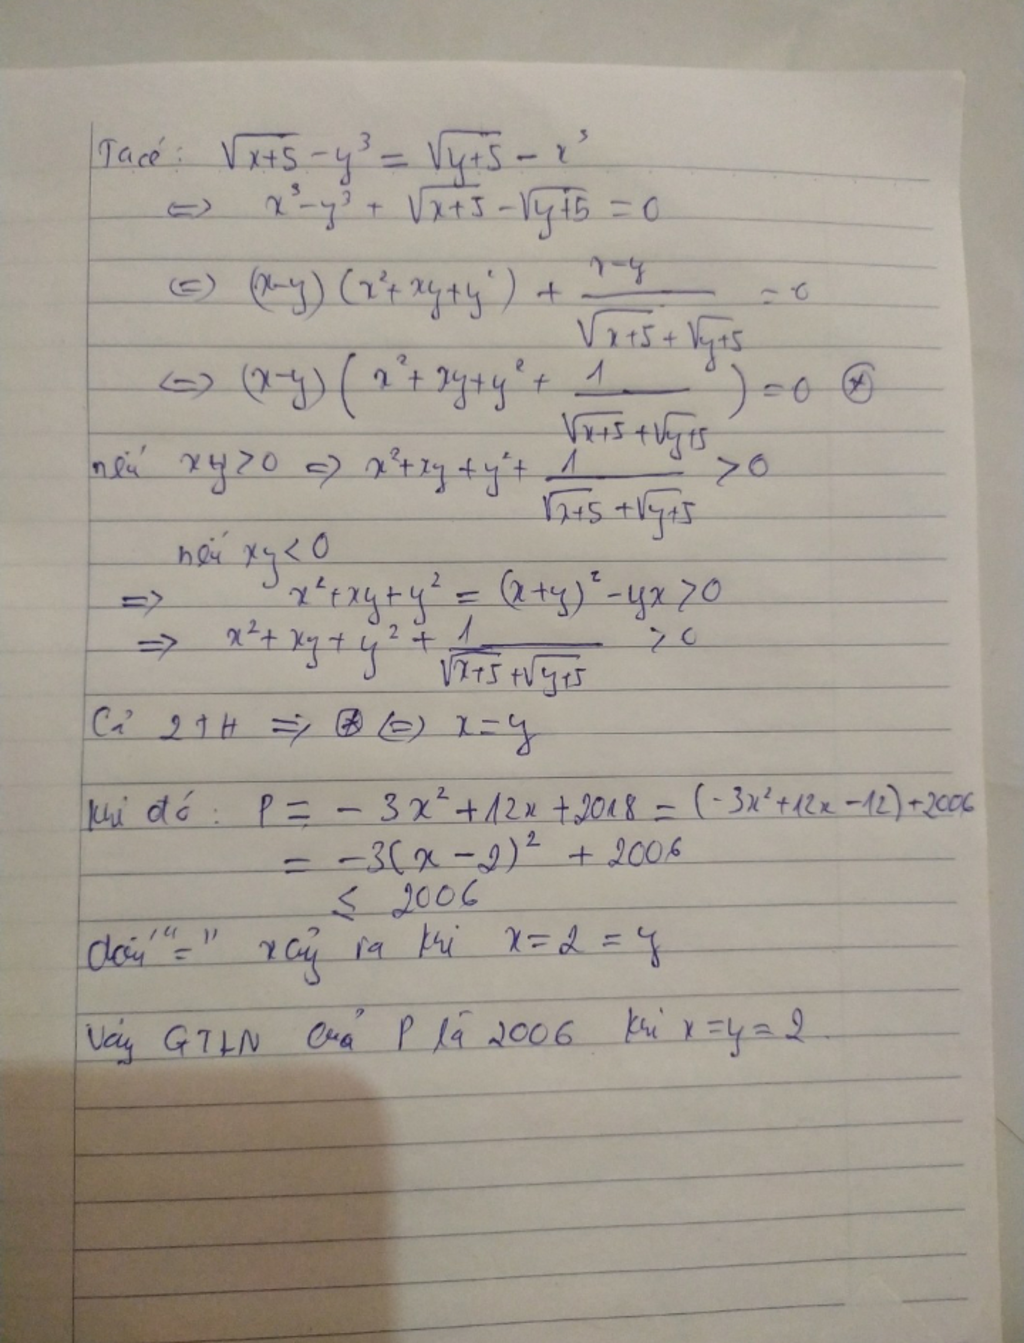 Ta có: √(x+5) - y³ = √(y+5) - x³
<=> x³ - y³ + √(x+5) - √(y+5) = 0
<=> (x-y)(x²+xy+y²) + (x-y)/(√(x+5) + √(y+5)) = 0
<=> (x-y)(x²+xy+y² + 1/(√(x+5) + √(y+5))) = 0 (*)
nếu xy>0 => x²+xy+y² + 1/(√(x+5) + √(y+5)) > 0
nếu xy<0
=> x²+xy+y² = (x+y)² - yx > 0
=> x²+xy+y² + 1/(√(x+5) + √(y+5)) > 0
Cả 2TH => (*) <=> x=y
khi đó: P = - 3x² + 12x + 2018 = (-3x²+12x-12)+2006
= -3(x-2)² + 2006
≤ 2006
dấu "=" xảy ra khi x=2=y
Vậy GTLN của P là 2006 khi x=y=2.